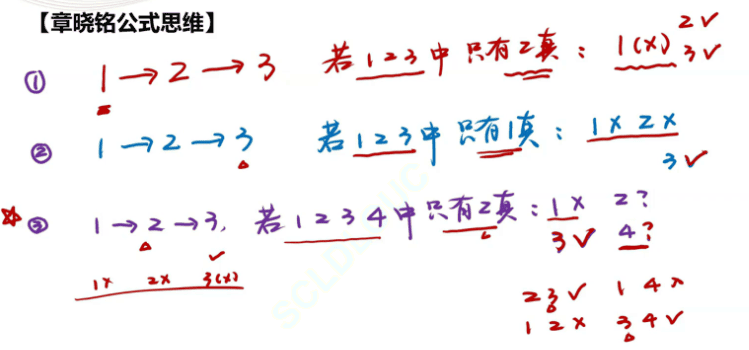 【章晓铭公式思维】
① 1→2→3 若123中只有2真：1(×) 2✓ 3✓
② 1→2→3 若123中只有1真：1×2× 3✓
③ 1→2→3，若1234中只有2真：1× 2? 3✓ 4?
1× 2× 3(×) ✓
23✓ 14×
12× 34✓